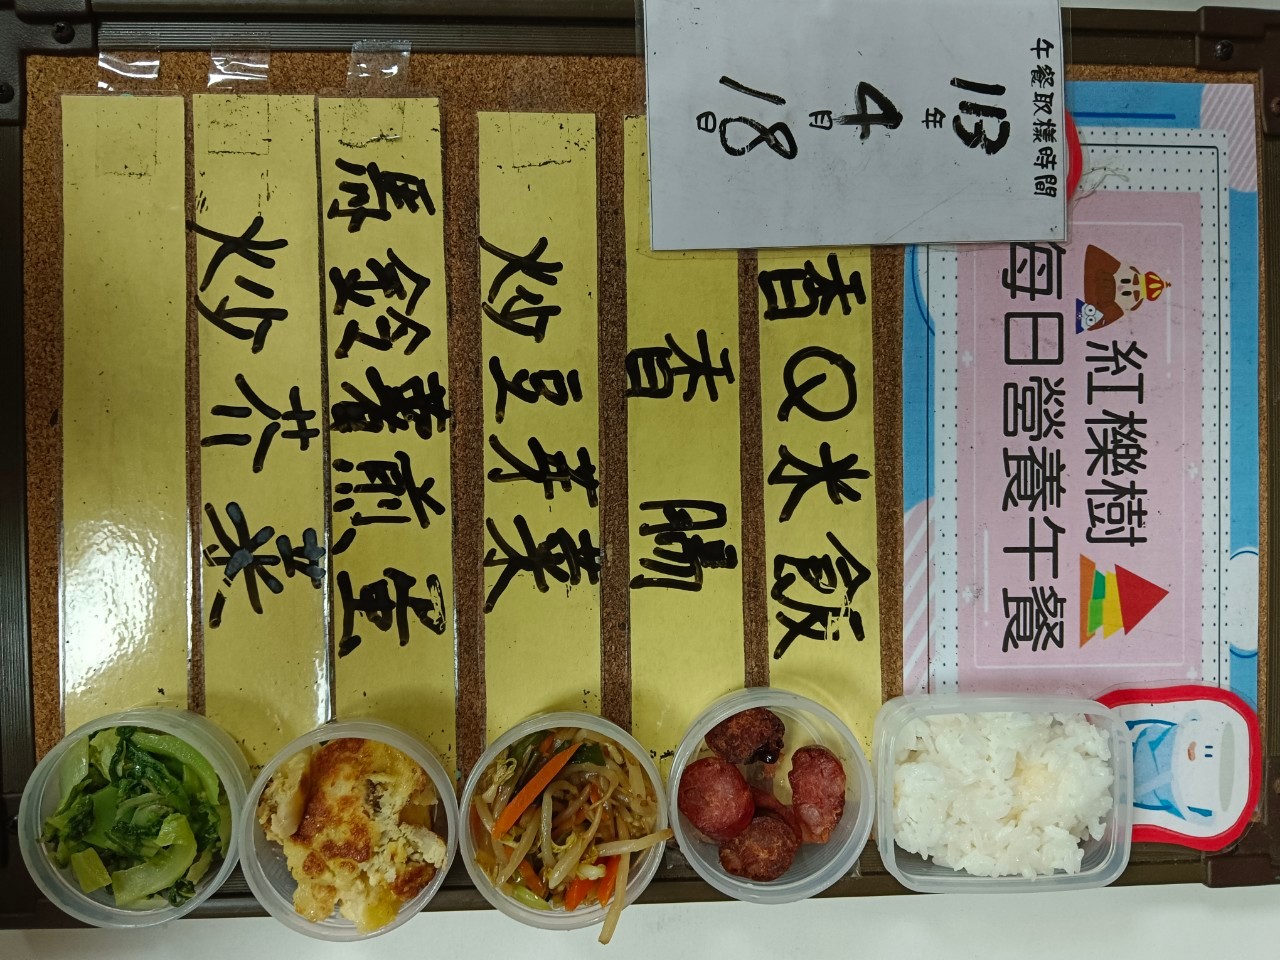 午餐取樣時間
113年
4月
18日
紅櫟樹
每日營養午餐
香Q米飯
香腸
炒豆芽菜
馬鈴薯煎蛋
炒芥菜